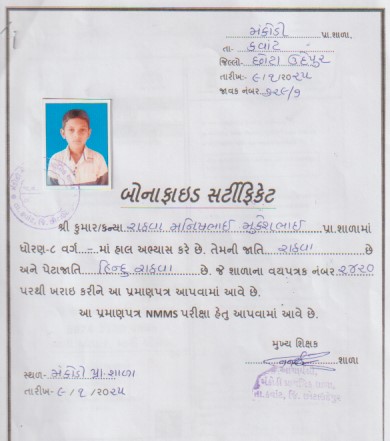 મંકોડી પ્રા.શાળા,
તા- કવાંટ
જિલ્લો- છોટા ઉદેપુર
તારીખ- ૯/૧/૨૦૨૫
જાવક નંબર
બોનાફાઇડ સર્ટીફિકેટ
શ્રી કુમાર/કન્યા રાઠવા મનિષભાઇ મુકેશભાઇ પ્રા.શાળામાં
ધોરણ-૮ વર્ગ - માં હાલ અભ્યાસ કરે છે. તેમની જાતિ રાઠવા છે
અને પેટાજાતિ હિન્દુ રાઠવા છે. જે શાળાના વયપત્રક નંબર ૨૪૨૦
પરથી ખરાઇ કરીને આ પ્રમાણપત્ર આપવામાં આવે છે.
આ પ્રમાણપત્ર NMMS પરીક્ષા હેતુ આપવામાં આવે છે.
મુખ્ય શિક્ષક
શાળા
સ્થળ- મંકોડી પ્રા.શાળા
તારીખ- ૯/૧/૨૦૨૫